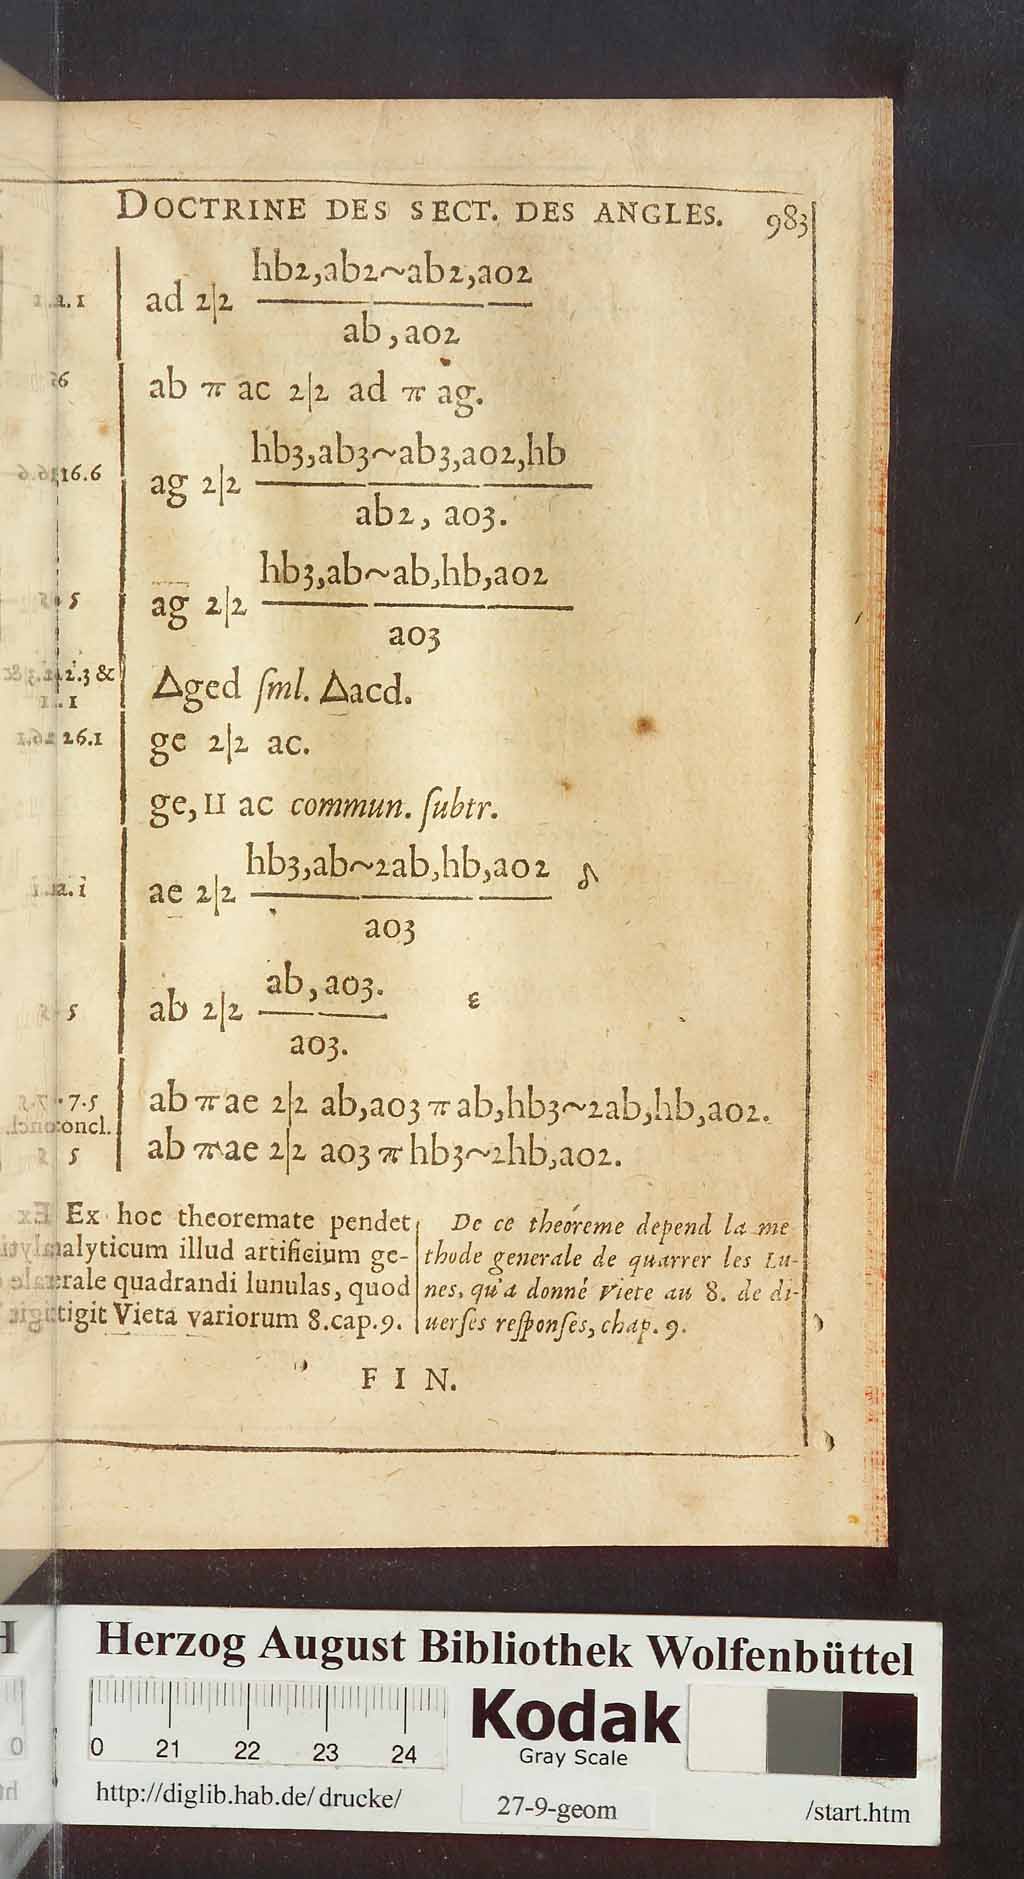 DOCTRINE DES SECT. DES ANGLES. 983
hb2,ab2~ab2,ao2
ad 2|2
ab,ao2
ab π ac 2|2 ad π ag.
hb3,ab3~ab3,ao2,hb
16.6 ag 2|2
ab2, ao3.
hb3,ab~ab,hb,ao2
5 ag 2|2
ao3
2.3 & Δged ſml. Δacd.
1.1
26.1 ge 2|2 ac.
ge, II ac commun. ſubtr.
hb3,ab~2ab,hb,ao2 δ
a.1 ae 2|2
ao3
ab,ao3. ε
5 ab 2|2
ao3.
7.5 ab π ae 2|2 ab,ao3 π ab,hb3~2ab,hb,ao2.
concl.
5 ab π ae 2|2 ao3 π hb3~2hb,ao2.
Ex hoc theoremate pendet
alyticum illud artificium ge-
rale quadrandi lunulas, quod
tigit Vieta variorum 8.cap.9.
De ce theóreme depend la me
thode generale de quarrer les Lu-
nes, qu'a donné Viete au 8. de di-
uerſes reſponſes, chap. 9.
FIN.
Herzog August Bibliothek Wolfenbüttel
Kodak
Gray Scale
0 21 22 23 24
http://diglib.hab.de/drucke/ 27-9-geom /start.htm